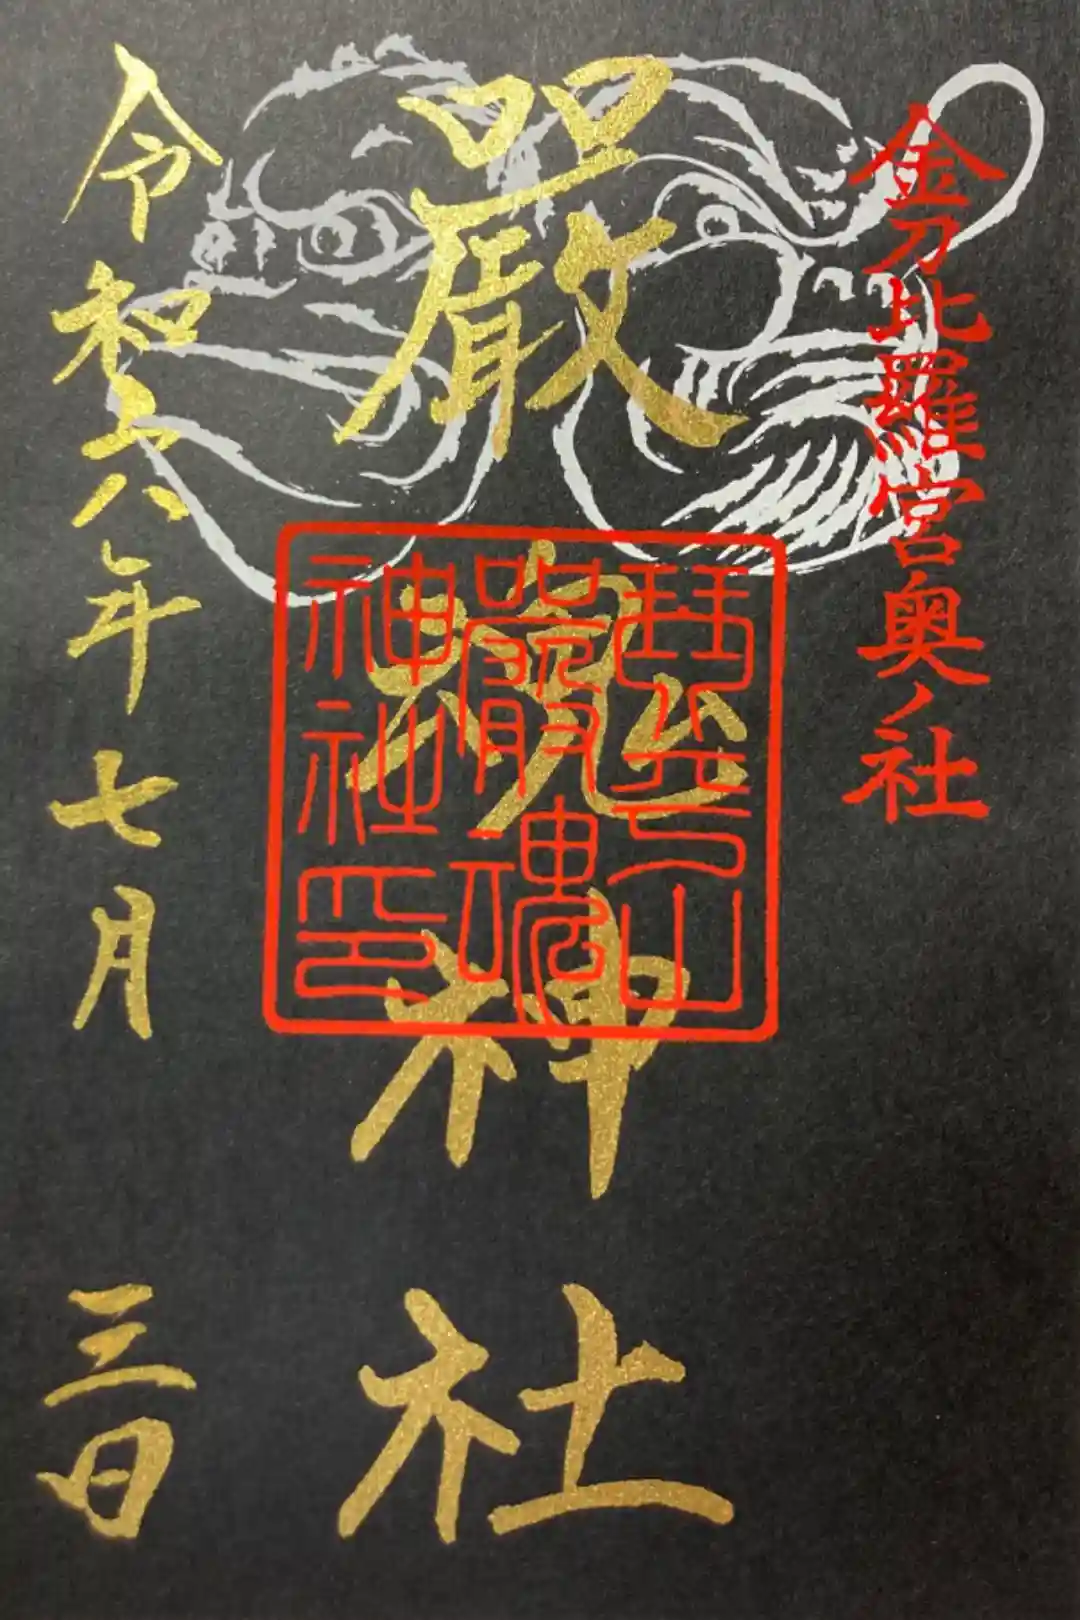 金刀比羅宮奥ノ社
嚴魂神社
琴平山
嚴魂
神社印
令和六年七月三日